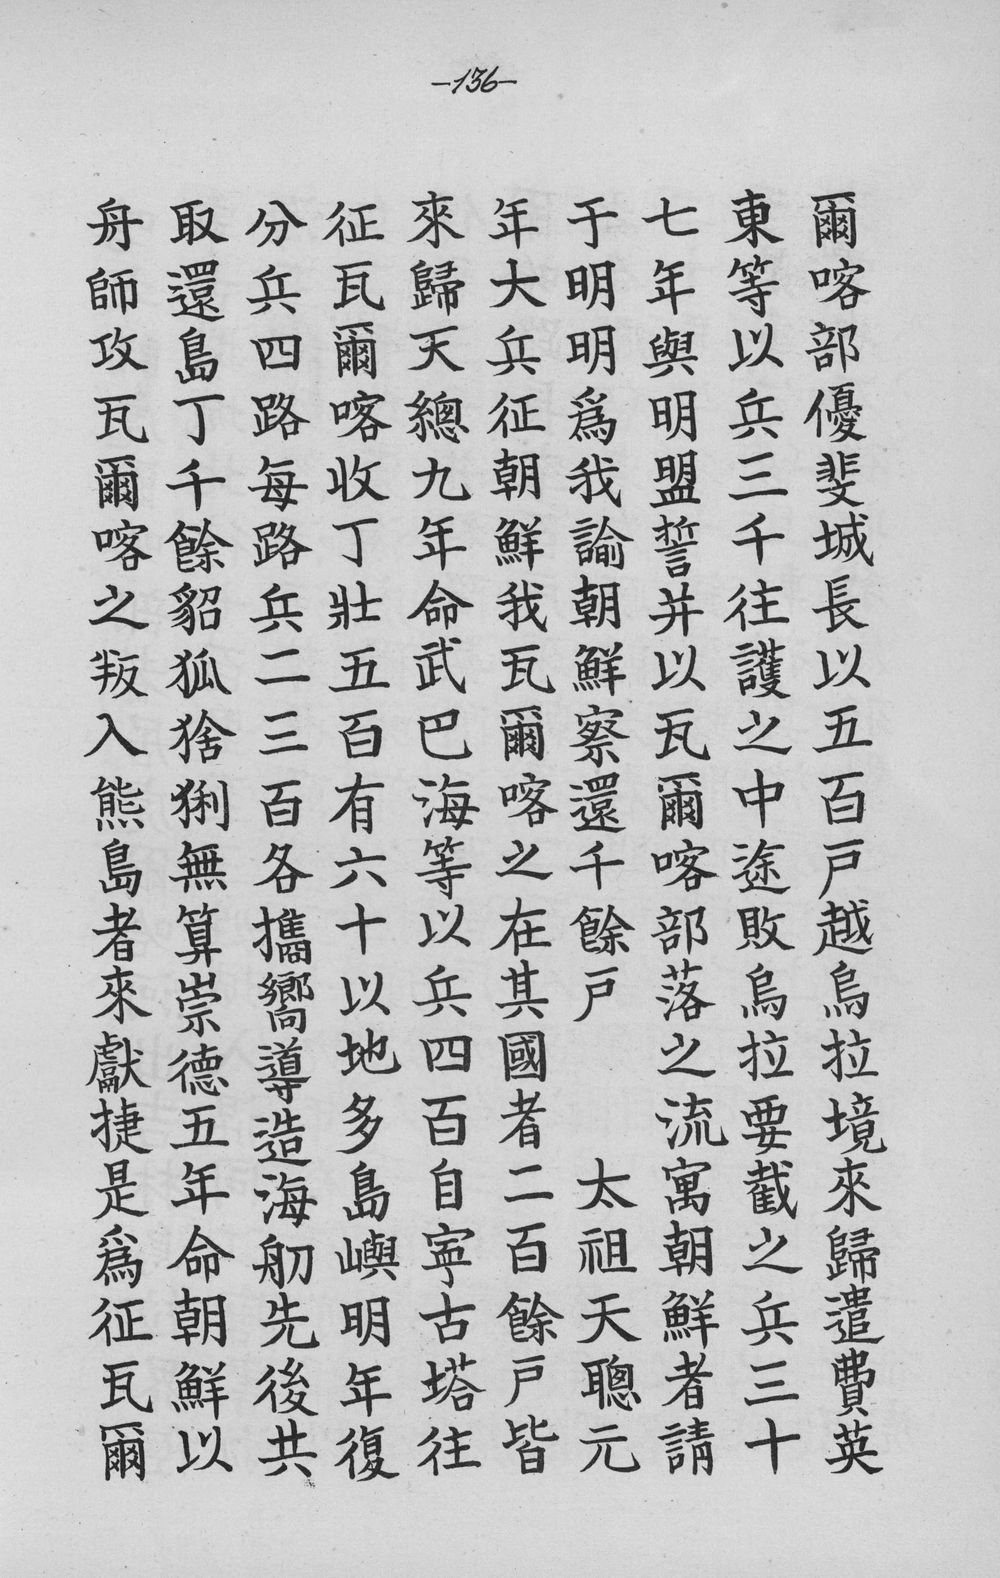 —136—
爾喀部優斐城長以五百戶越烏拉境來歸遣費英
東等以兵三千往護之中途敗烏拉要截之兵三十
七年與明盟誓并以瓦爾喀部落之流寓朝鮮者請
于明明爲我諭朝鮮察還千餘戶　太祖天聰元
年大兵征朝鮮我瓦爾喀之在其國者二百餘戶皆
來歸天總九年命武巴海等以兵四百自寧古塔往
征瓦爾喀收丁壯五百有六十以地多島嶼明年復
分兵四路每路兵二三百各攜嚮導造海舠先後共
取還島丁千餘貂狐猞猁無算崇德五年命朝鮮以
舟師攻瓦爾喀之叛入熊島者來獻捷是爲征瓦爾